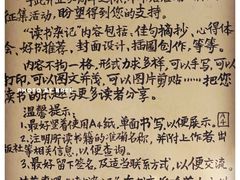 征集活动，盼望得到您的支持。
“读书杂记”内容包括，佳句摘抄，心得体
会、好书推荐，封面设计，插图创作，等等。
内容不拘一格，形式力求多样，可以手写，可以
打印，可以图文并茂，可以图片剪贴……把您
读书的乐趣与更多读者分享。
温馨提示：
1.最好望着使用A4纸，单面书写，以便展示。
2.注明所读书籍的准确名称，并附上作者、出
版社等相关信息，以便查询。
3.最好留下签名，及适当联系方式，以便交流。